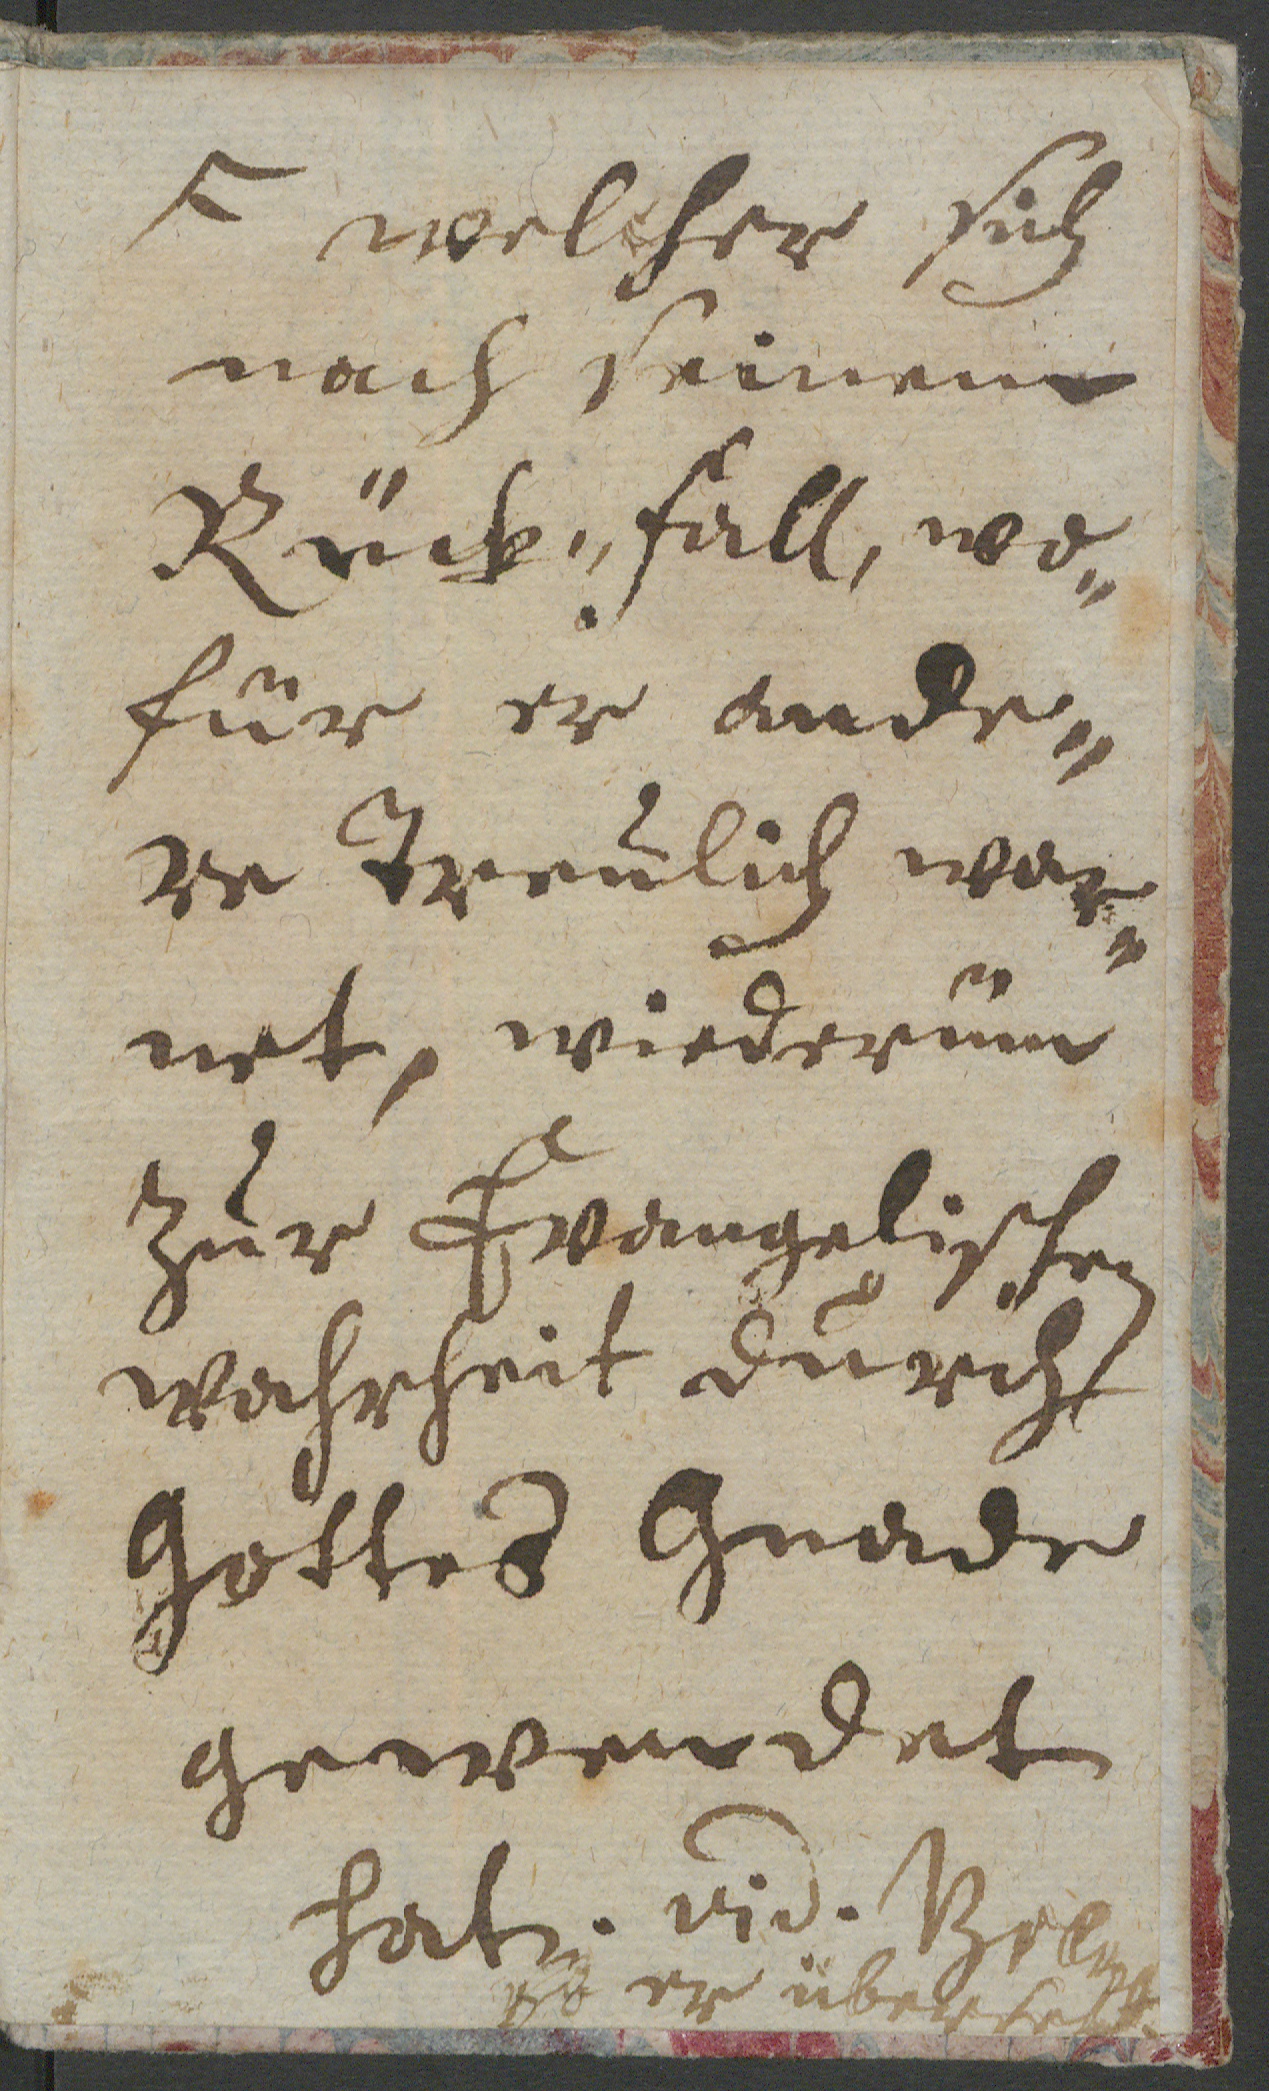 welcher sich
nach seinem
Rück„fall, wo„
für er ande„
re Treulich war„
net, wiederum
zur Evangelischen
wahrheit durch
Gottes Gnade
gewendet
hat. vid.
er überset